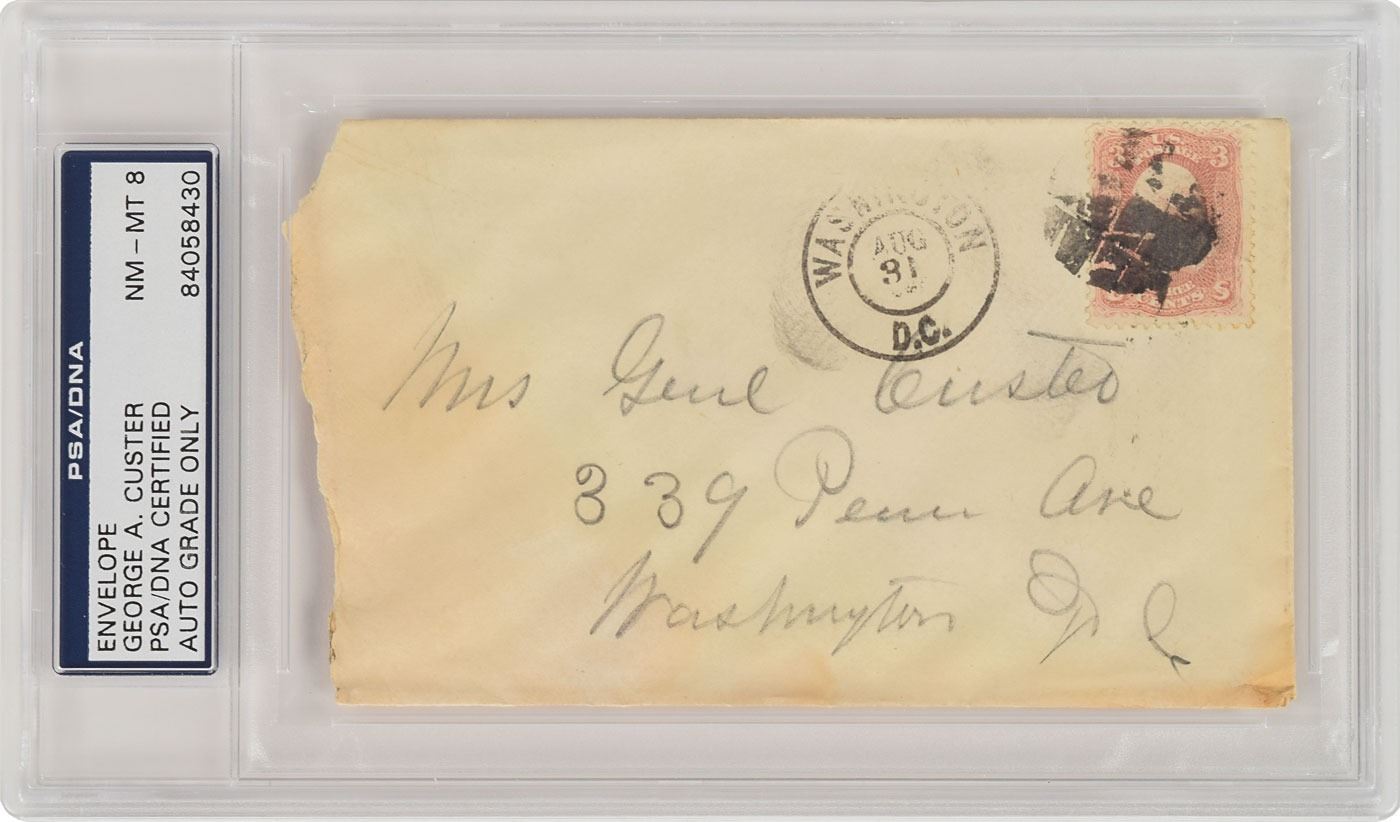 PSA/DNA
ENVELOPE
GEORGE A. CUSTER
PSA/DNA CERTIFIED
AUTO GRADE ONLY
NM-MT 8
84058430
WASHINGTON
AUG
31
D.C.
U.S.
POSTAGE
3
CENTS
Mrs Genl Custer
339 Penn Ave
Washington D C